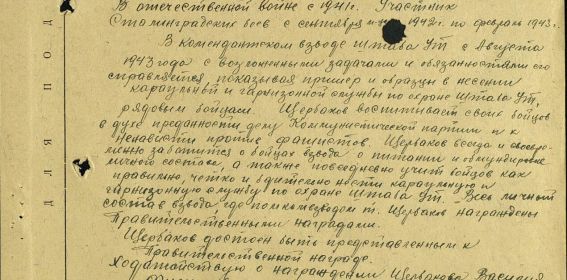 В отечественной войне с 1941 г. Участник
Сталинградских боев с сентября 1942 г. по февраль 1943 г.
В комендантском взводе штаба УТ с Августа
1943 года с возложенными задачами и обязанностями его
справляется, показывая пример и образцы в несении
караульной и гарнизонной службы по охране штаба УТ,
рядовым бойцам. Щербаков воспитывает своих бойцов
в духе преданности делу Коммунистической партии и к
ненависти против фашистов. Щербаков всегда и своевре-
менно заботится о бойцах взвода о питании и обмундировке
личного состава, а также повседневно учит бойцов как
правильно, четко и бдительно нести караульную и
гарнизонную службу по охране штаба УТ. Весь личный
состав взвода где помкомвзводом т. Щербаков награждены
Правительственными наградами.
Щербаков достоен быть представленным к
Правительственной награде.
Ходатайствую о награждении Щербакова Василия
ДЛЯ ПОД